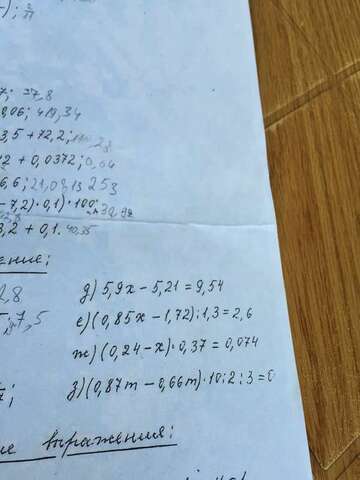 7; 37,8
0,06; 419,34
3,5 + 72,2;
12 + 0,0372; 0,64
6,6; 21,0
-7,2)·0,1)·100;
3,2 + 0,1. 40,35
ение:
2,8
7,5
д) 5,9х - 5,21 = 9,54
е) (0,85х - 1,72) : 1,3 = 2,6
ж) (0,24 - х)·0,37 = 0,074
7;
з) (0,87m - 0,66m)·10 : 2 : 3 = 0
ие выражения: